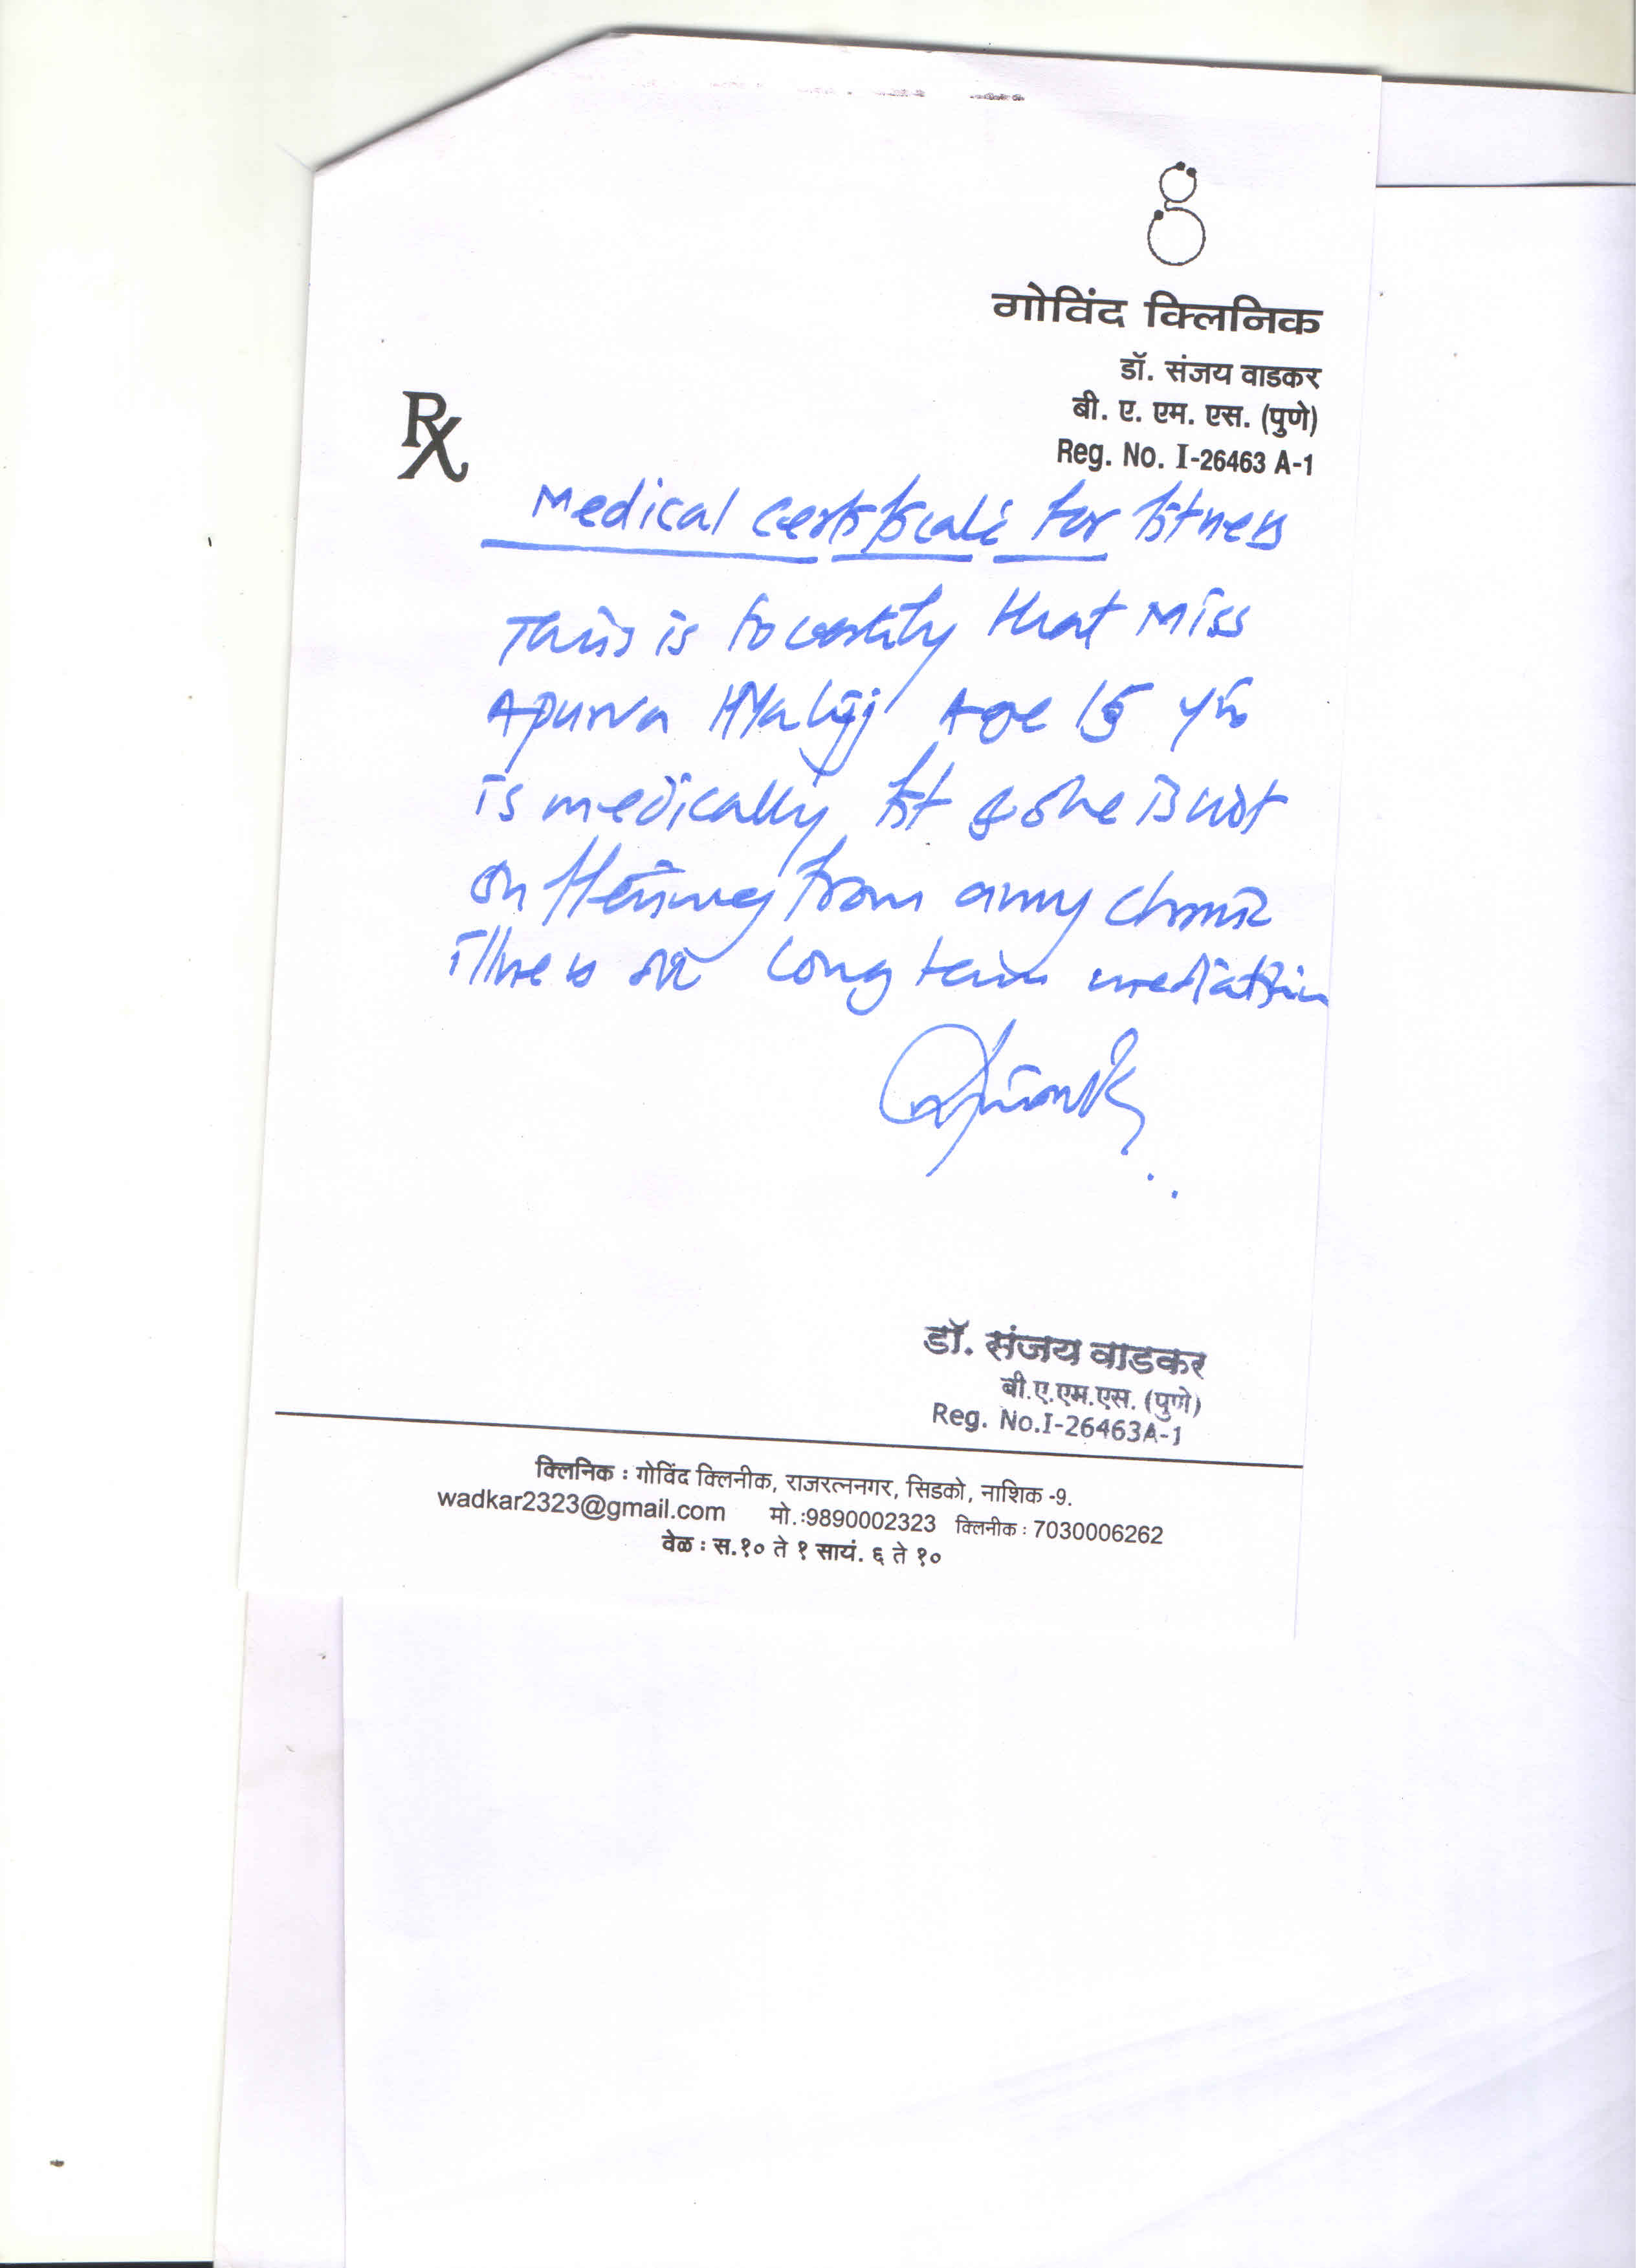 गोविंद क्लिनिक
डॉ. संजय वाडकर
बी. ए. एम. एस. (पुणे)
Reg. No. I-26463 A-1
Rx
Medical certificate for fitness
This is to certify that Miss
Apurva Age 15 yrs
is medically fit & she is not
suffering from any chronic
illness or long term
डॉ. संजय वाडकर
बी.ए.एम.एस. (पुणे)
Reg. No.I-26463A-1
क्लिनिक : गोविंद क्लिनीक, राजरत्ननगर, सिडको, नाशिक -9.
wadkar2323@gmail.com मो.:9890002323 क्लिनीक : 7030006262
वेळ : स.१० ते १ सायं. ६ ते १०